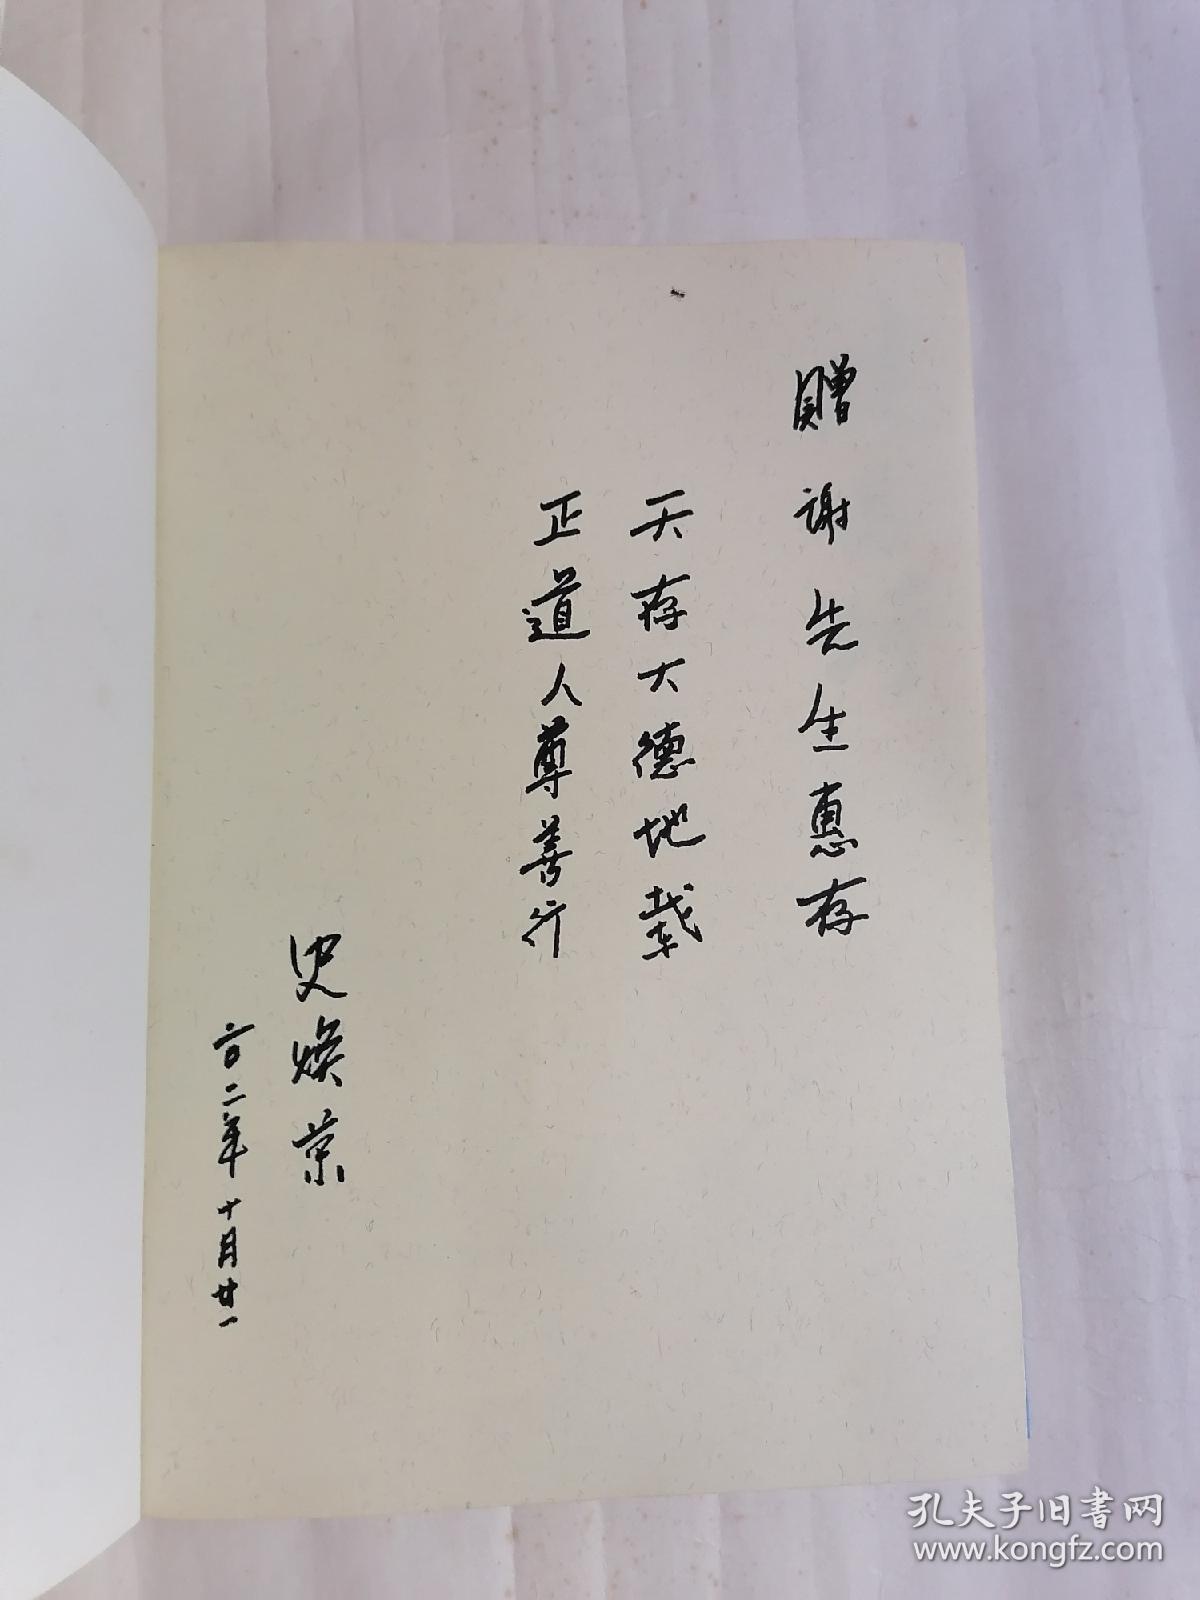 贈谢先生惠存
天存大德地載
正道人尊善行
史焕荣
二〇〇二年十月廿一
孔夫子旧书网
www.kongfz.com